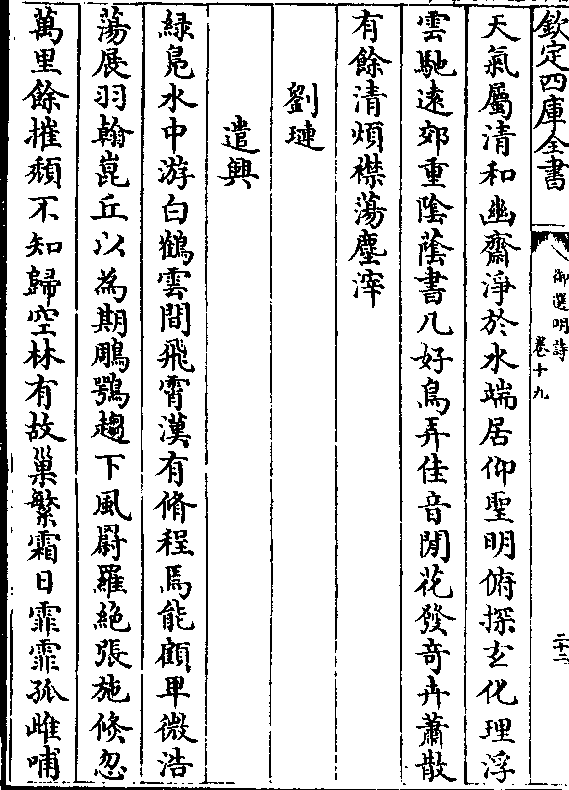 欽定四庫全書
御選明詩
卷十九
二十二
天氣屬清和幽齋淨於水端居仰聖明俯探玄化理浮
雲馳遠郊重陰蔭書几好鳥弄佳音閒花發奇卉蕭散
有餘清煩襟蕩塵滓
劉璉
遣興
緑鳧水中游白鶴雲間飛霄漢有脩程焉能顧卑微浩
蕩展羽翰崑丘以為期鵰鶚趨下風罻羅絶張施倐忽
萬里餘摧頽不知歸空林有故巢繁霜日霏霏孤雌哺